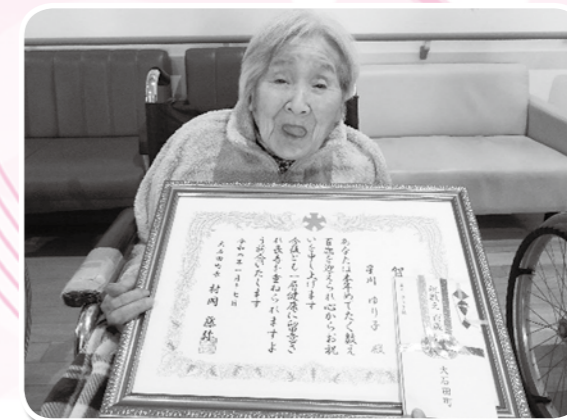 賀
星川 ゆり子 殿
あなたは本年めでたく数え
百歳を迎えられ心からお祝
いを申し上げます
今後とも一層健康に留意さ
れ長寿を重ねられますよ
うお祈りいたします
大石田町長 村岡 藤弥
大石田町